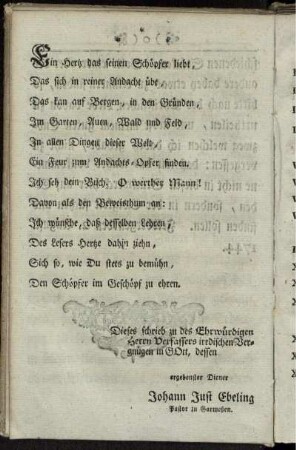 Ein Hertz das seinen Schöpfer liebt,
Das sich in reiner Andacht übt,
Das kan auf Bergen, in den Gründen,
Im Garten, Auen, Wald und Feld,
In allen Dingen dieser Welt
Ein Feur zum Andachts-Opfer finden.
Ich seh dein Buch, O werther Mann!
Davon als den Beweisthum an:
Ich wünsche, daß desselben Lehren
Des Lesers Hertze dahin ziehn,
Sich so, wie Du stets zu bemühn,
Den Schöpfer im Geschöpf zu ehren.
Dieses schrieb zu des Ehrwürdigen
Herrn Verfassers irrdischen Ver-
gnügen in GOtt, dessen
ergebenster Diener
Johann Just Ebeling
Pastor zu Garmessen.